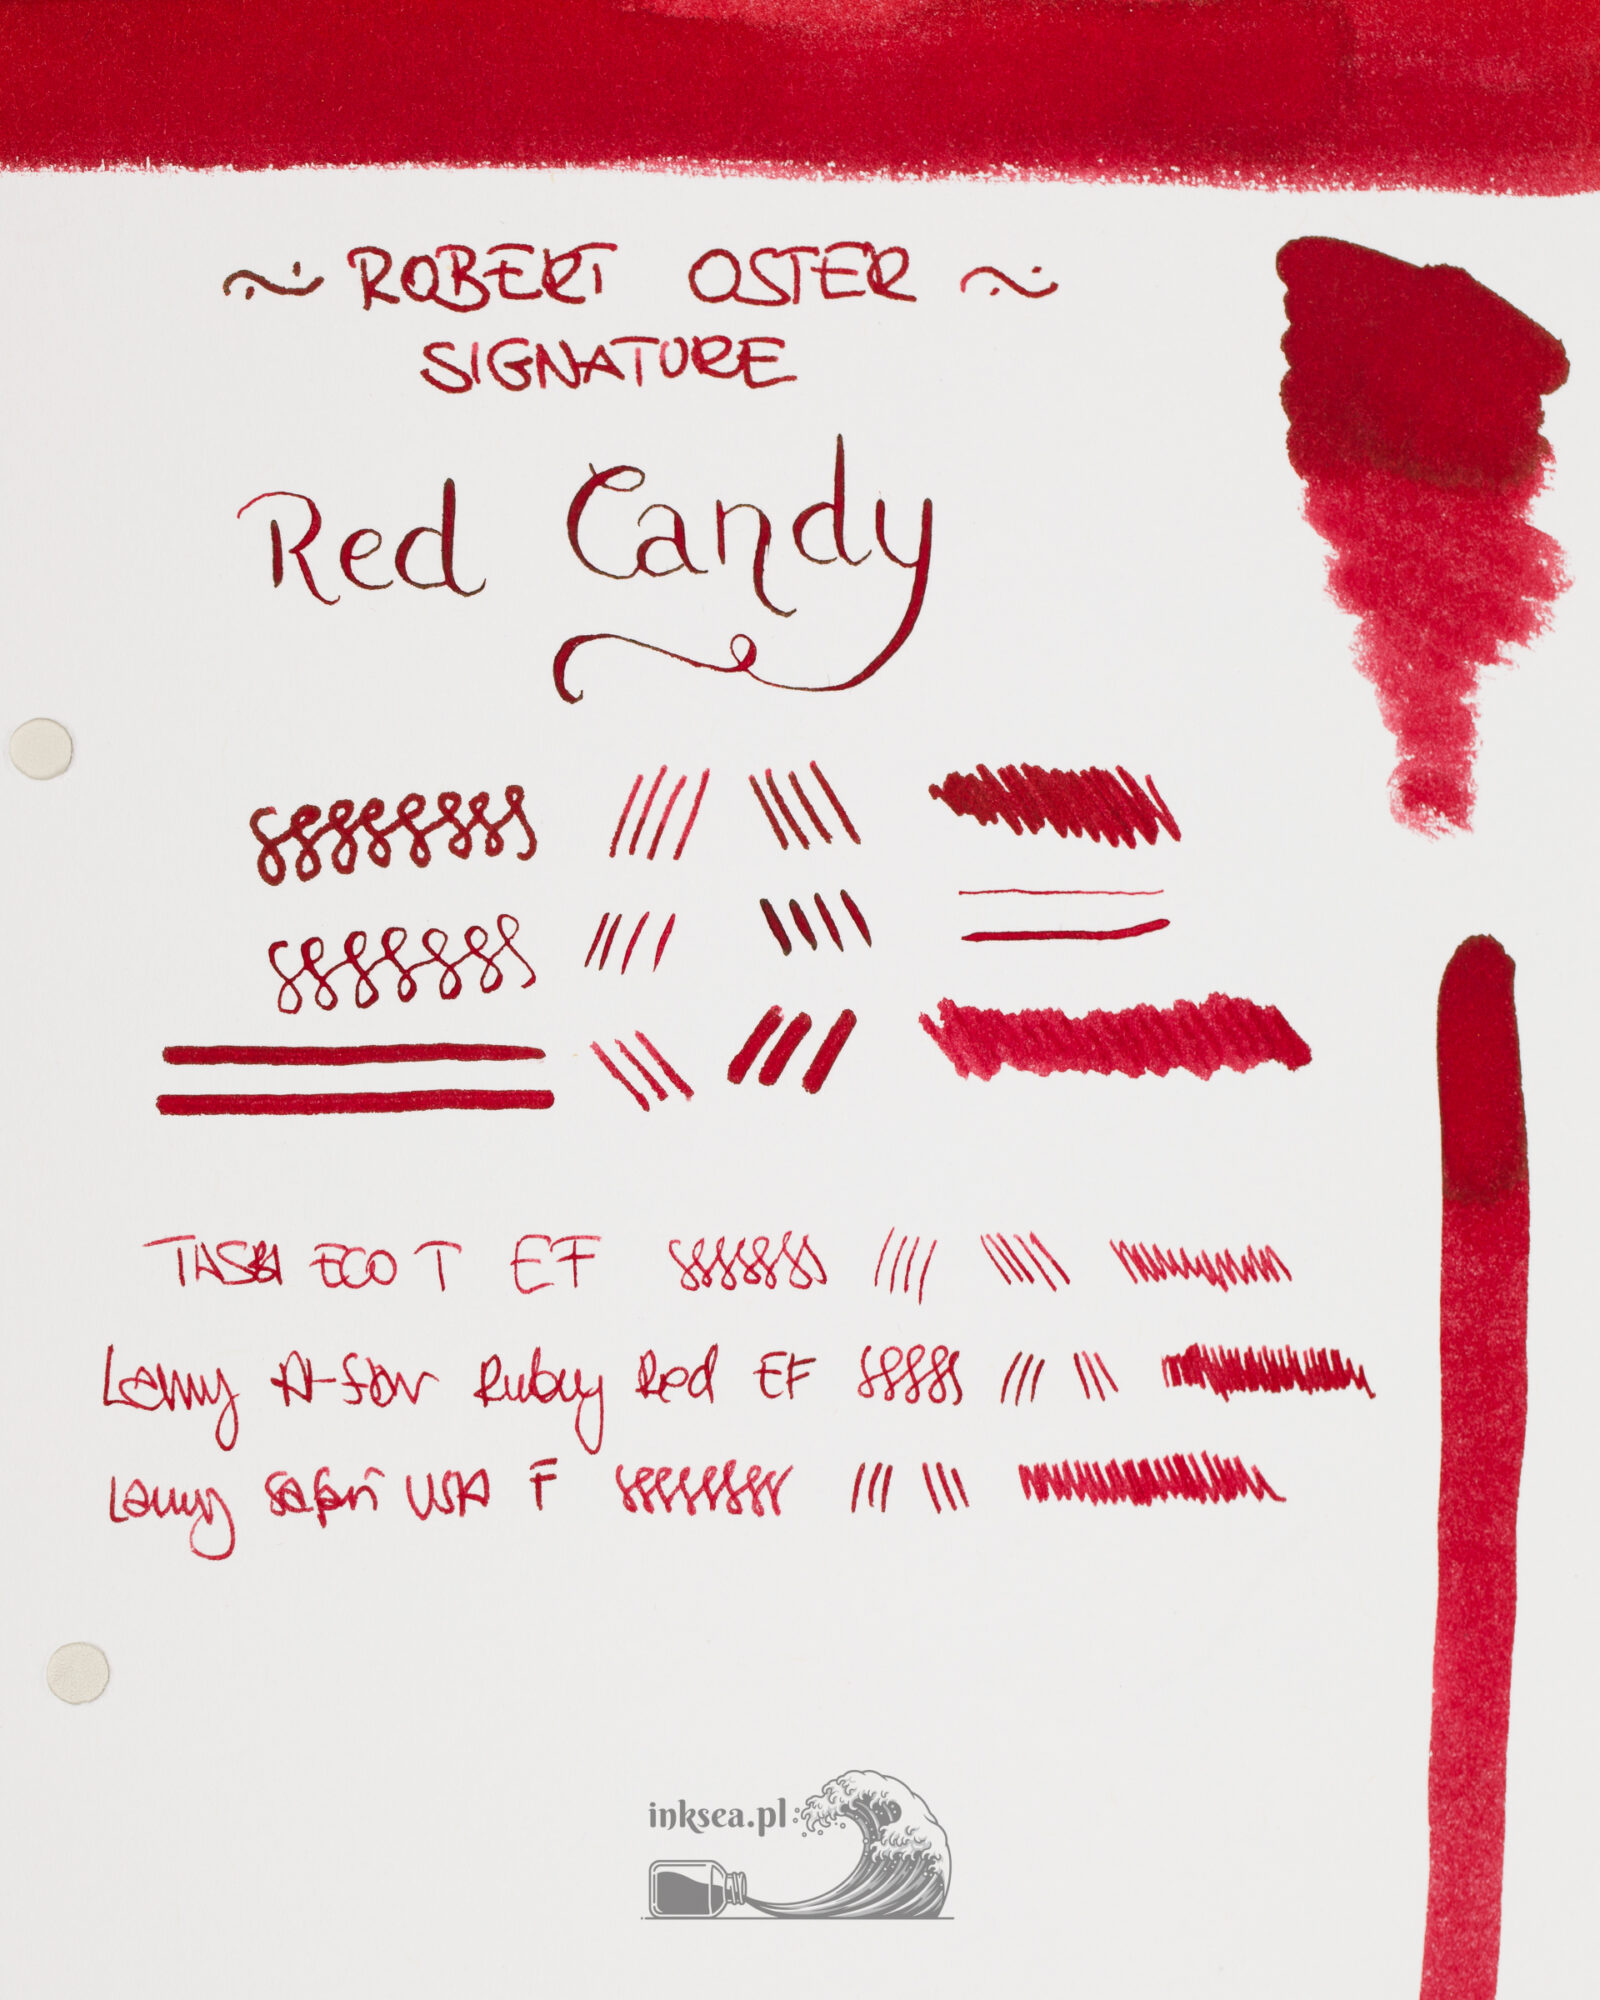 ~ ROBERT OSTER ~
SIGNATURE
Red Candy
TWSBI ECO T EF
Lamy Al-Star Ruby Red EF
Lamy Safari USA F
inksea.pl